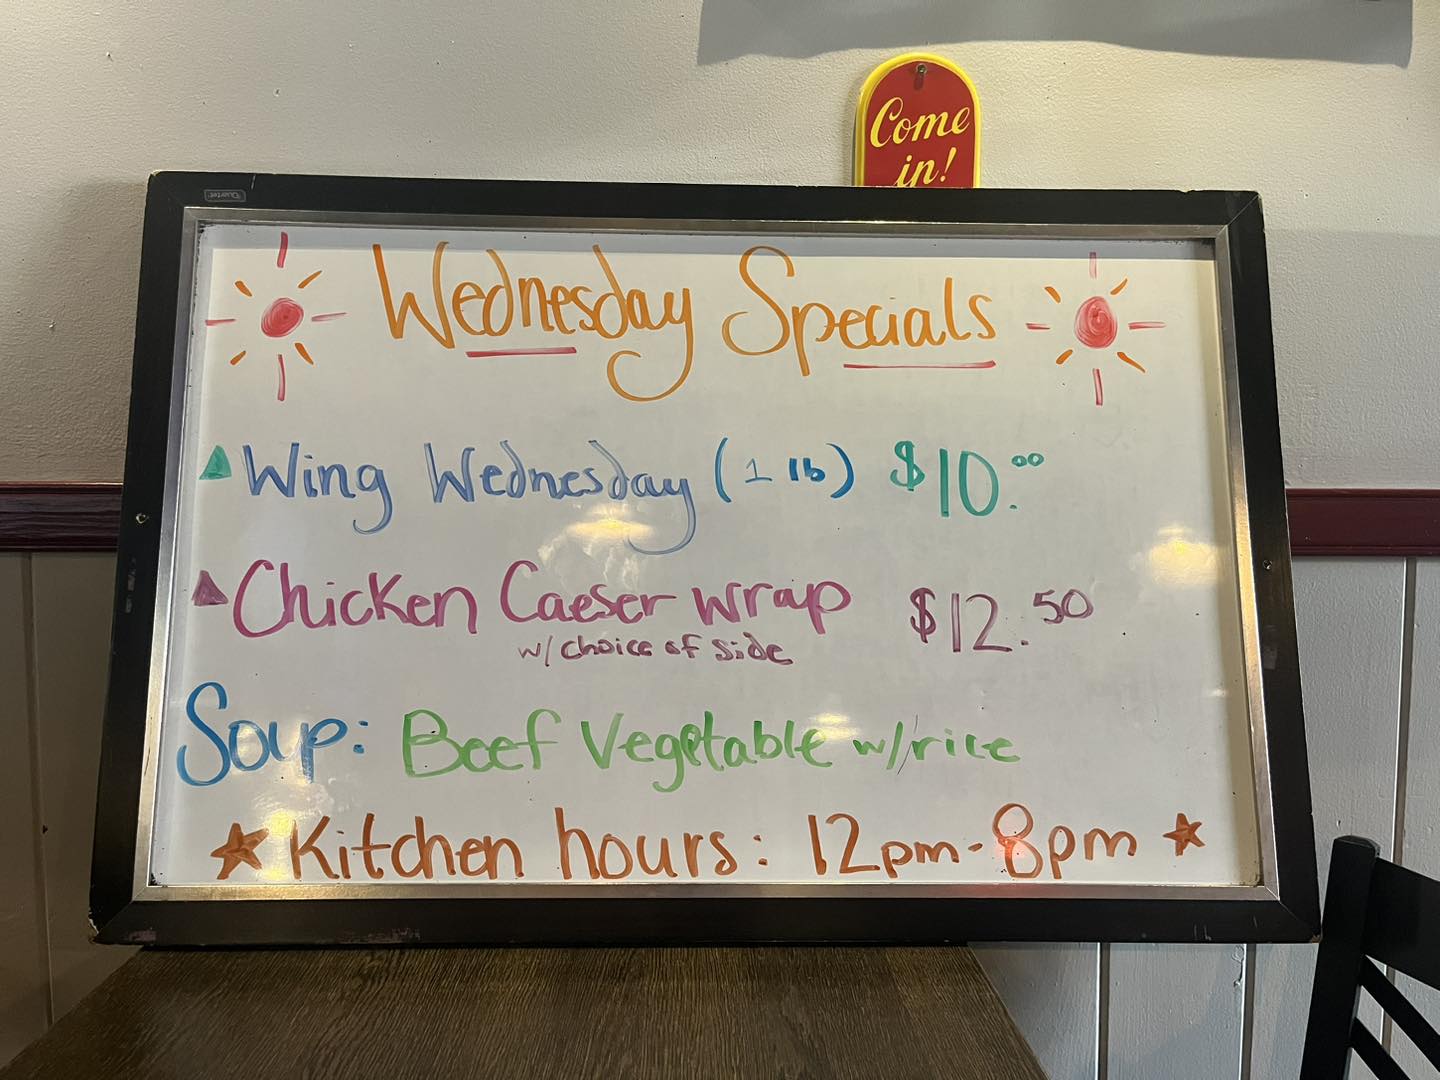 Come
in!
Quartet
Wednesday Specials
Wing Wednesday (1 lb) $10.00
Chicken Caeser wrap $12.50
w/ choice of side
Soup: Beef Vegetable w/rice
Kitchen hours: 12pm-8pm